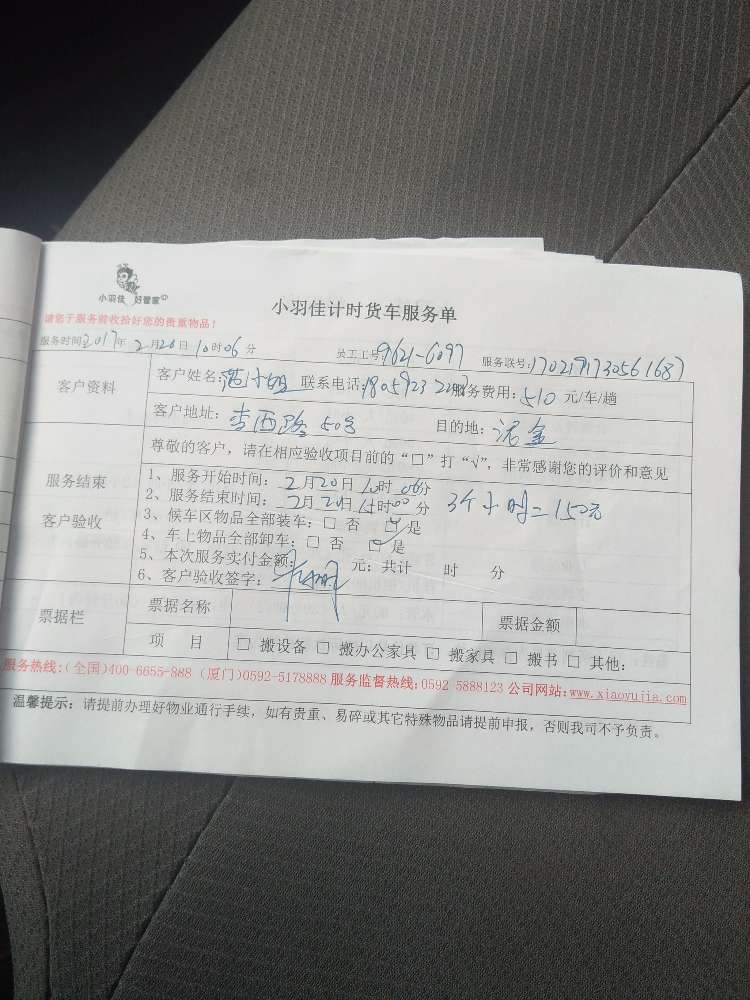 小羽佳 好管家
小羽佳计时货车服务单
请您于服务前收拾好您的贵重物品!
服务时间2017年2月20日10时06分 员工工号9621-6097 服务联号:1702191730561687
客户资料
客户姓名: 小姐 联系电话: 服务费用:510元/车/趟
客户地址: 西路50号 目的地:
服务结束
客户验收
尊敬的客户,请在相应验收项目前的“□”打“√”,非常感谢您的评价和意见
1、服务开始时间: 2月20日10时06分
2、服务结束时间: 2月20日15时00分 3个小时=150元
3、候车区物品全部装车:□ 否 ☑ 是
4、车上物品全部卸车:□ 否 ☑ 是
5、本次服务实付金额: 元;共计 时 分
6、客户验收签字:
票据栏
票据名称 票据金额
项 目 □ 搬设备 □ 搬办公家具 □ 搬家具 □ 搬书 □ 其他:
服务热线:(全国)400 6655-888 (厦门)0592-5178888 服务监督热线:0592 5888123 公司网站:www.xiaoyujia.com
温馨提示:请提前办理好物业通行手续,如有贵重、易碎或其它特殊物品请提前申报,否则我司不予负责。